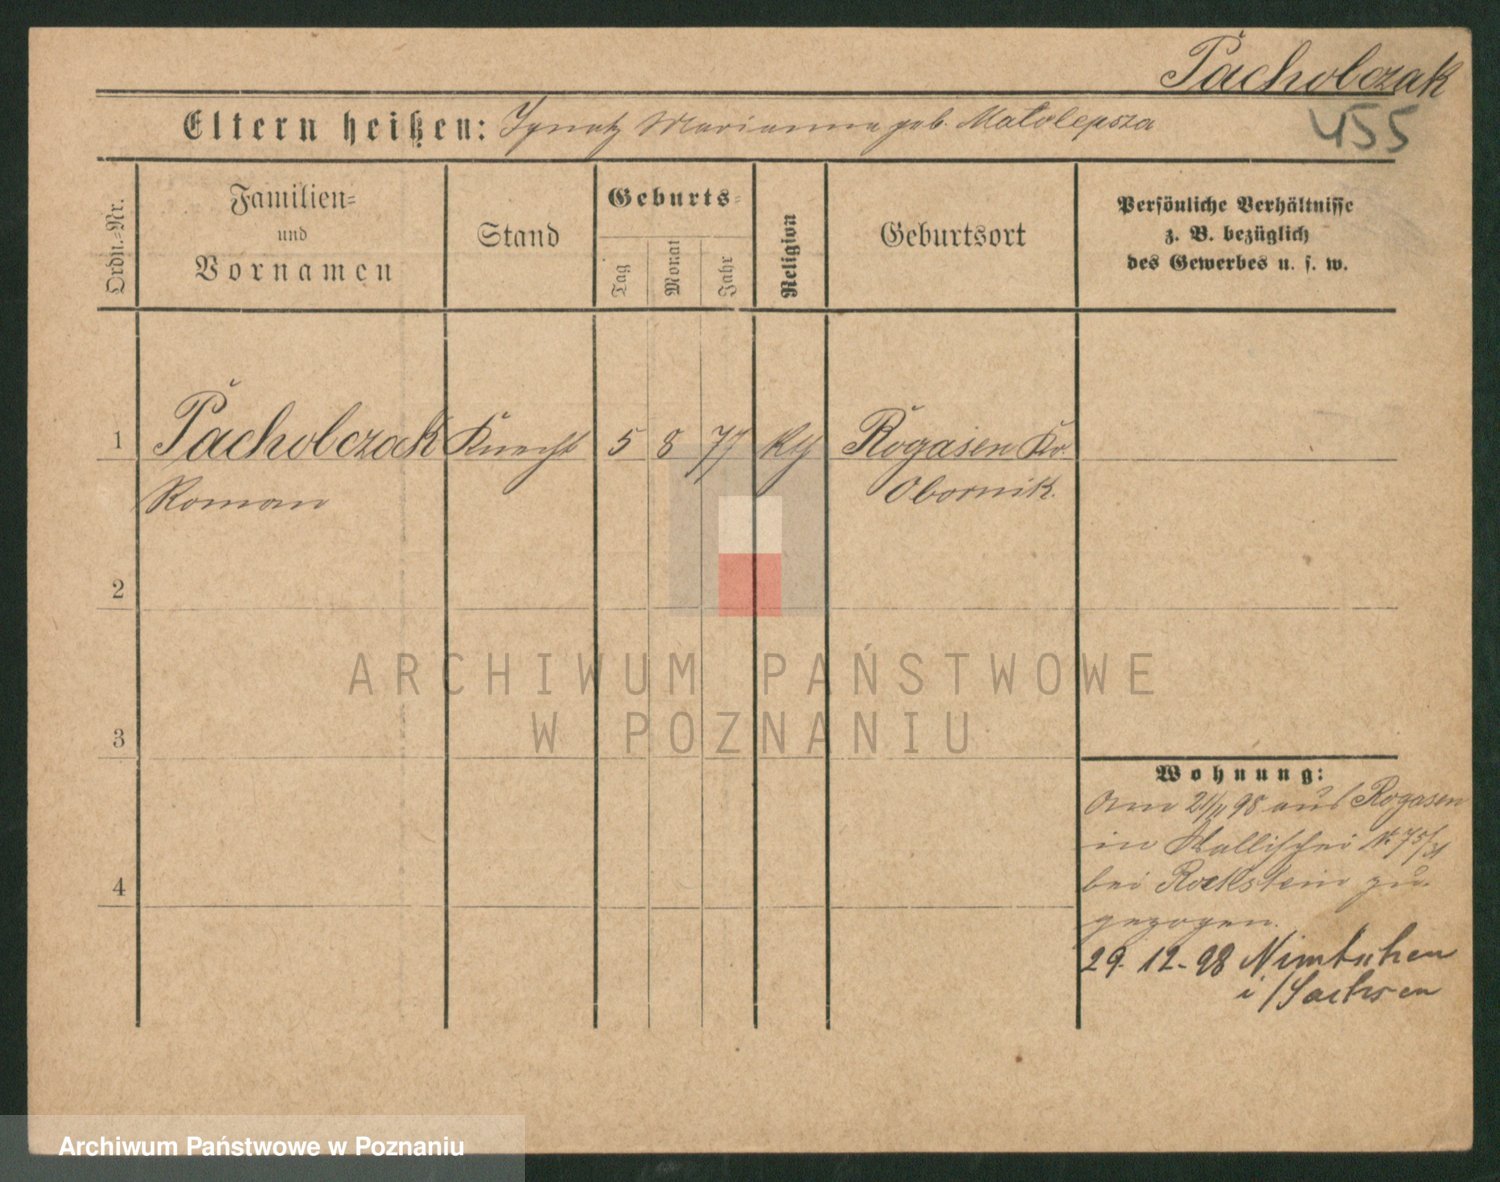 Pachobczak
455
Eltern heißen: Ignatz Marianna geb. Matolepsza
Ordn.-Nr.
Familien-
und
Vornamen
Stand
Geburts-
Tag
Monat
Jahr
Religion
Geburtsort
Persönliche Verhältnisse
z. B. bezüglich
des Gewerbes u. s. w.
1 Pachobczak Knecht 5 8 77 Rogasen Kr.
Roman Obornik.
2
ARCHIWUM PAŃSTWOWE
W POZNANIU
3
4
Wohnung:
Am 21/11 98 aus Rogasen
in 
bei Rockstein zu-
gezogen.
29. 12. 98 Nimtschen
i/Sachsen
Archiwum Państwowe w Poznaniu